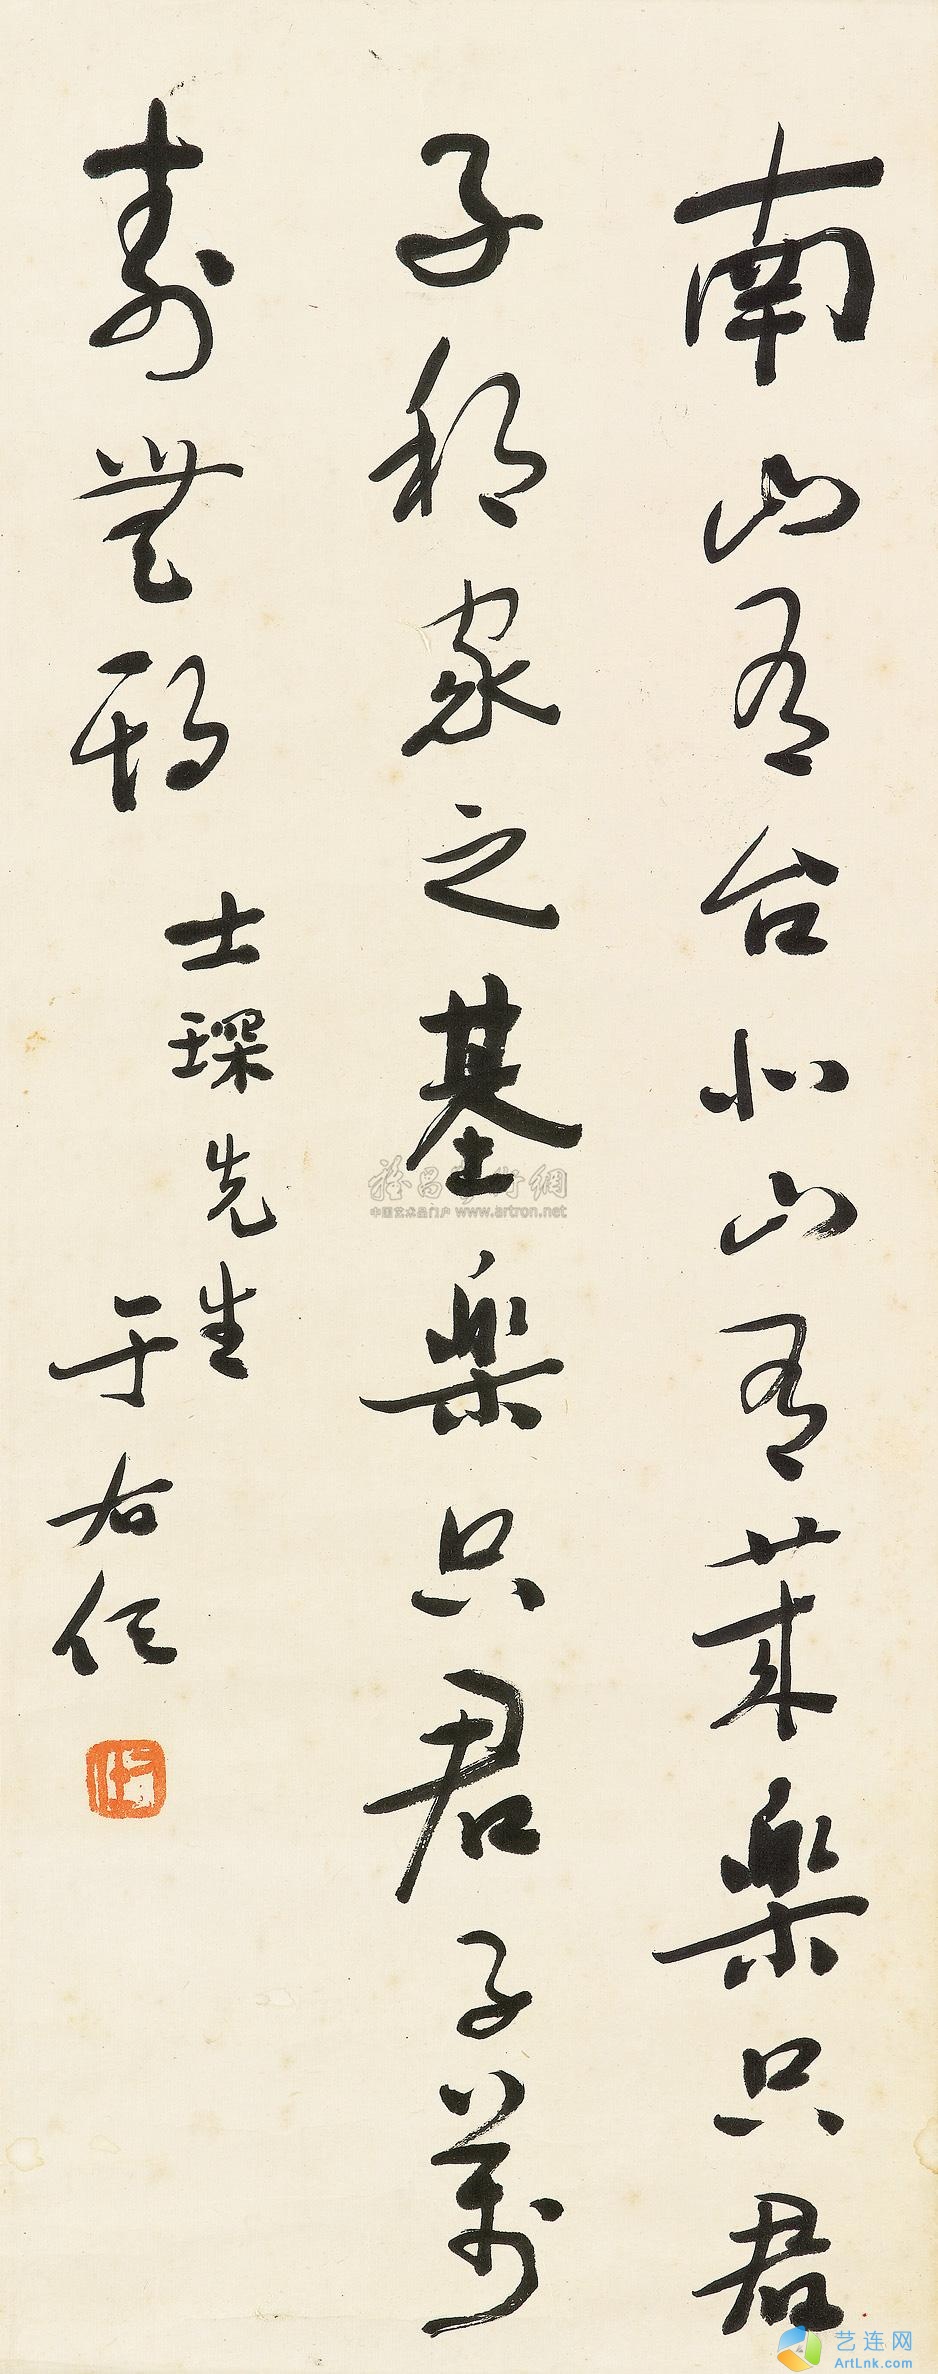 南山有台北山有莱楽只君
子邦家之基楽只君子萬
壽無期
士琛先生
于右任
中国艺术品门户 www.artron.net
艺连网
ArtLnk.com